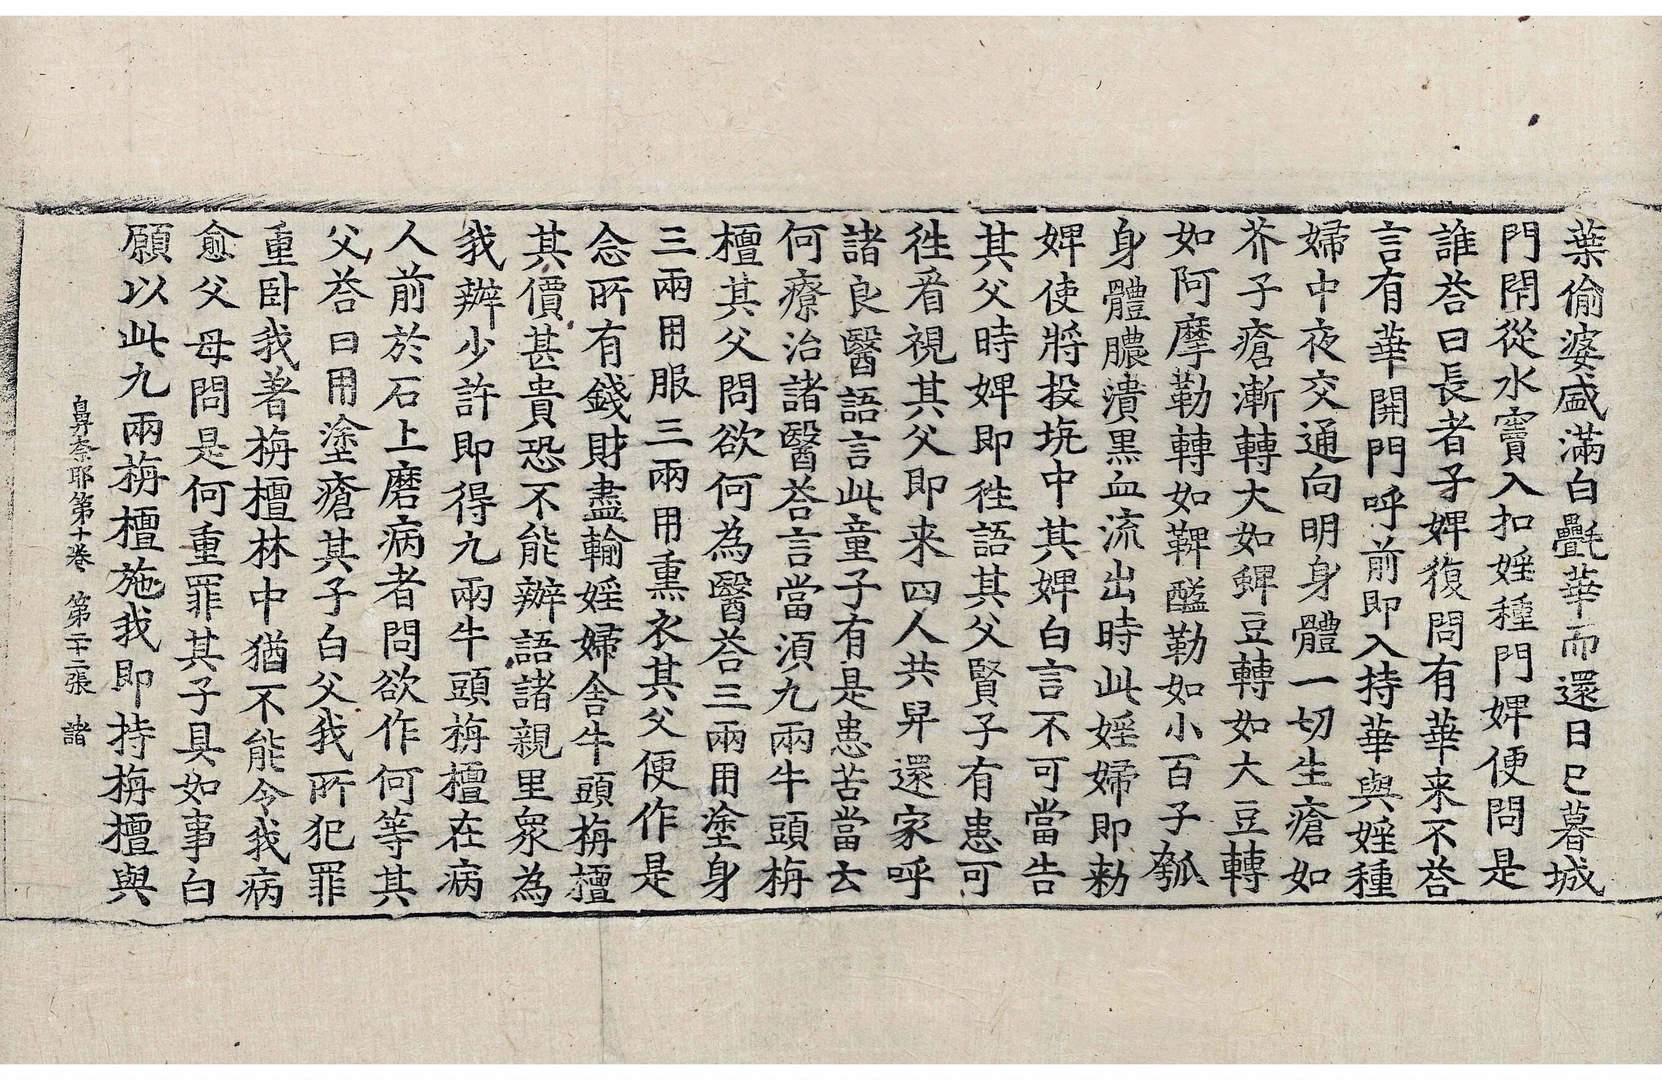 葉偷婆盛滿白㲲華而還日已暮城
門閇從水竇入扣婬種門婢便問是
誰荅曰長者子婢復問有華来不荅
言有華開門呼前即入持華與婬種
婦中夜交通向明身體一切生瘡如
芥子瘡漸轉大如䱱豆轉如大豆轉
如阿摩勒轉如鞞醯勒如小百子瓠
身體膿潰黒血流出時此婬婦即勑
婢使將投坑中其婢白言不可當告
其父時婢即徃語其父賢子有患可
徃看視其父即来四人共舁還家呼
諸良醫語言此童子有是患苦當去
何療治諸醫荅言當湏九兩牛頭栴
檀其父問欲何為醫荅三兩用塗身
三兩用服三兩用熏衣其父便作是
念所有錢財盡輸婬婦舎牛頭栴檀
其價甚貴恐不能辦語諸親里衆為
我辦少許即得九兩牛頭栴檀在病
人前於石上磨病者問欲作何等其
父荅曰用塗瘡其子白父我所犯罪
重卧我著栴檀林中猶不能令我病
愈父母問是何重罪其子具如事白
願以此九兩栴檀施我即持栴檀與
鼻柰耶第十卷 第二十二張 諸